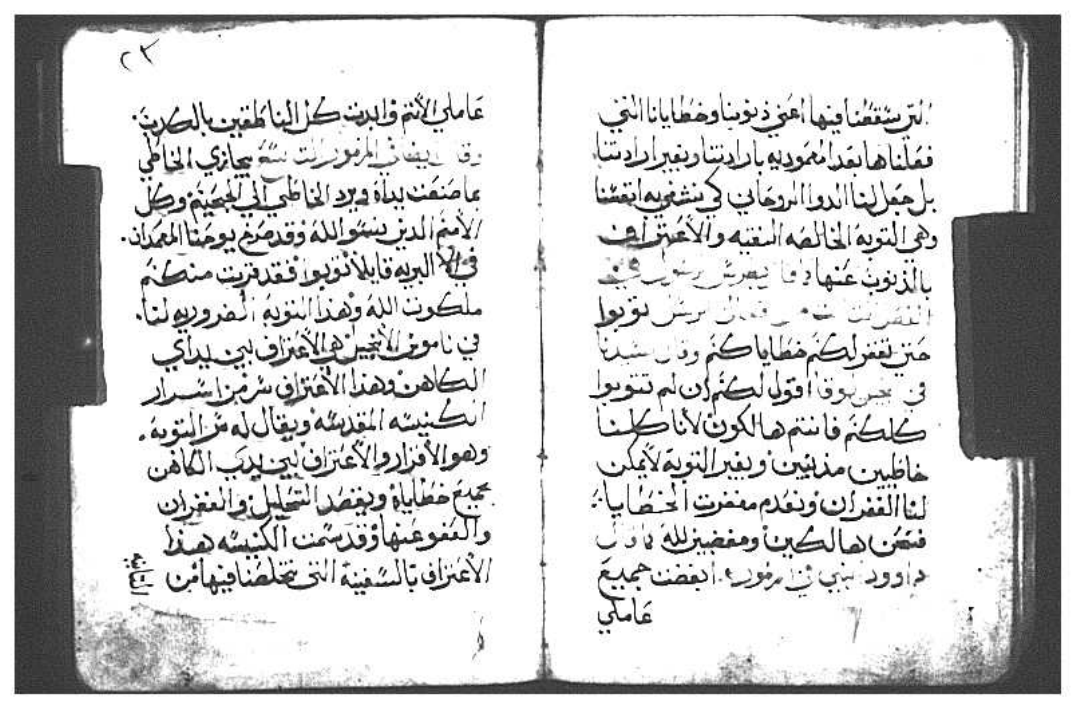 التي سقطنا فيها اعني ذنوبنا وخطايانا التي
فعلناها بعد المعموديه بارادتنا وبغير ارادتنا
بل جعل لنا الدوا الروحاني كي نشفي به انفسنا
وهي التوبه الخالصه النقيه والاعتراف
بالذنوب عنها بطرس رسول في
توبوا
حتي تغفر لكم خطاياكم وقال سيدنا
في لوقا اقول لكم ان لم تتوبوا
كلكم فانتم هالكون لانا كلنا
خاطيين مذنبين وبغير التوبه لايمكن
لنا الغفران وبعدم مغفرت الخطايا
فنحن هالكين ومغضبين لله
داوود النبي في ابغضت جميع
عاملي
٢٣
عاملي الاثم وابدت كل الناطقين بالكدب.
وقال ايضا في المزمور يجازي الخاطي
بما صنعت يداه ويرد الخاطي الي الجحيم وكل
الامم الذين نسوا الله وقد صرخ يوحنا المعمدان.
في البريه قايلا توبوا فقد قربت منكم
ملكوت الله وهذا التوبه الضروريه لنا.
في ناموس الانجيل هي الاعتراف بين يداي
الكاهن وهذا الاعتراف سر من اسرار
الكنيسه المقدسه ويقال له سر التوبه.
وهو الاقرار والاعتراف بين يدي الكاهن
بجميع خطاياه وبقصد التحليل والغفران
والعفو عنها وقد سمت الكنيسه هذا
الاعتراف بالسفينة التي تخلصنا فيها من